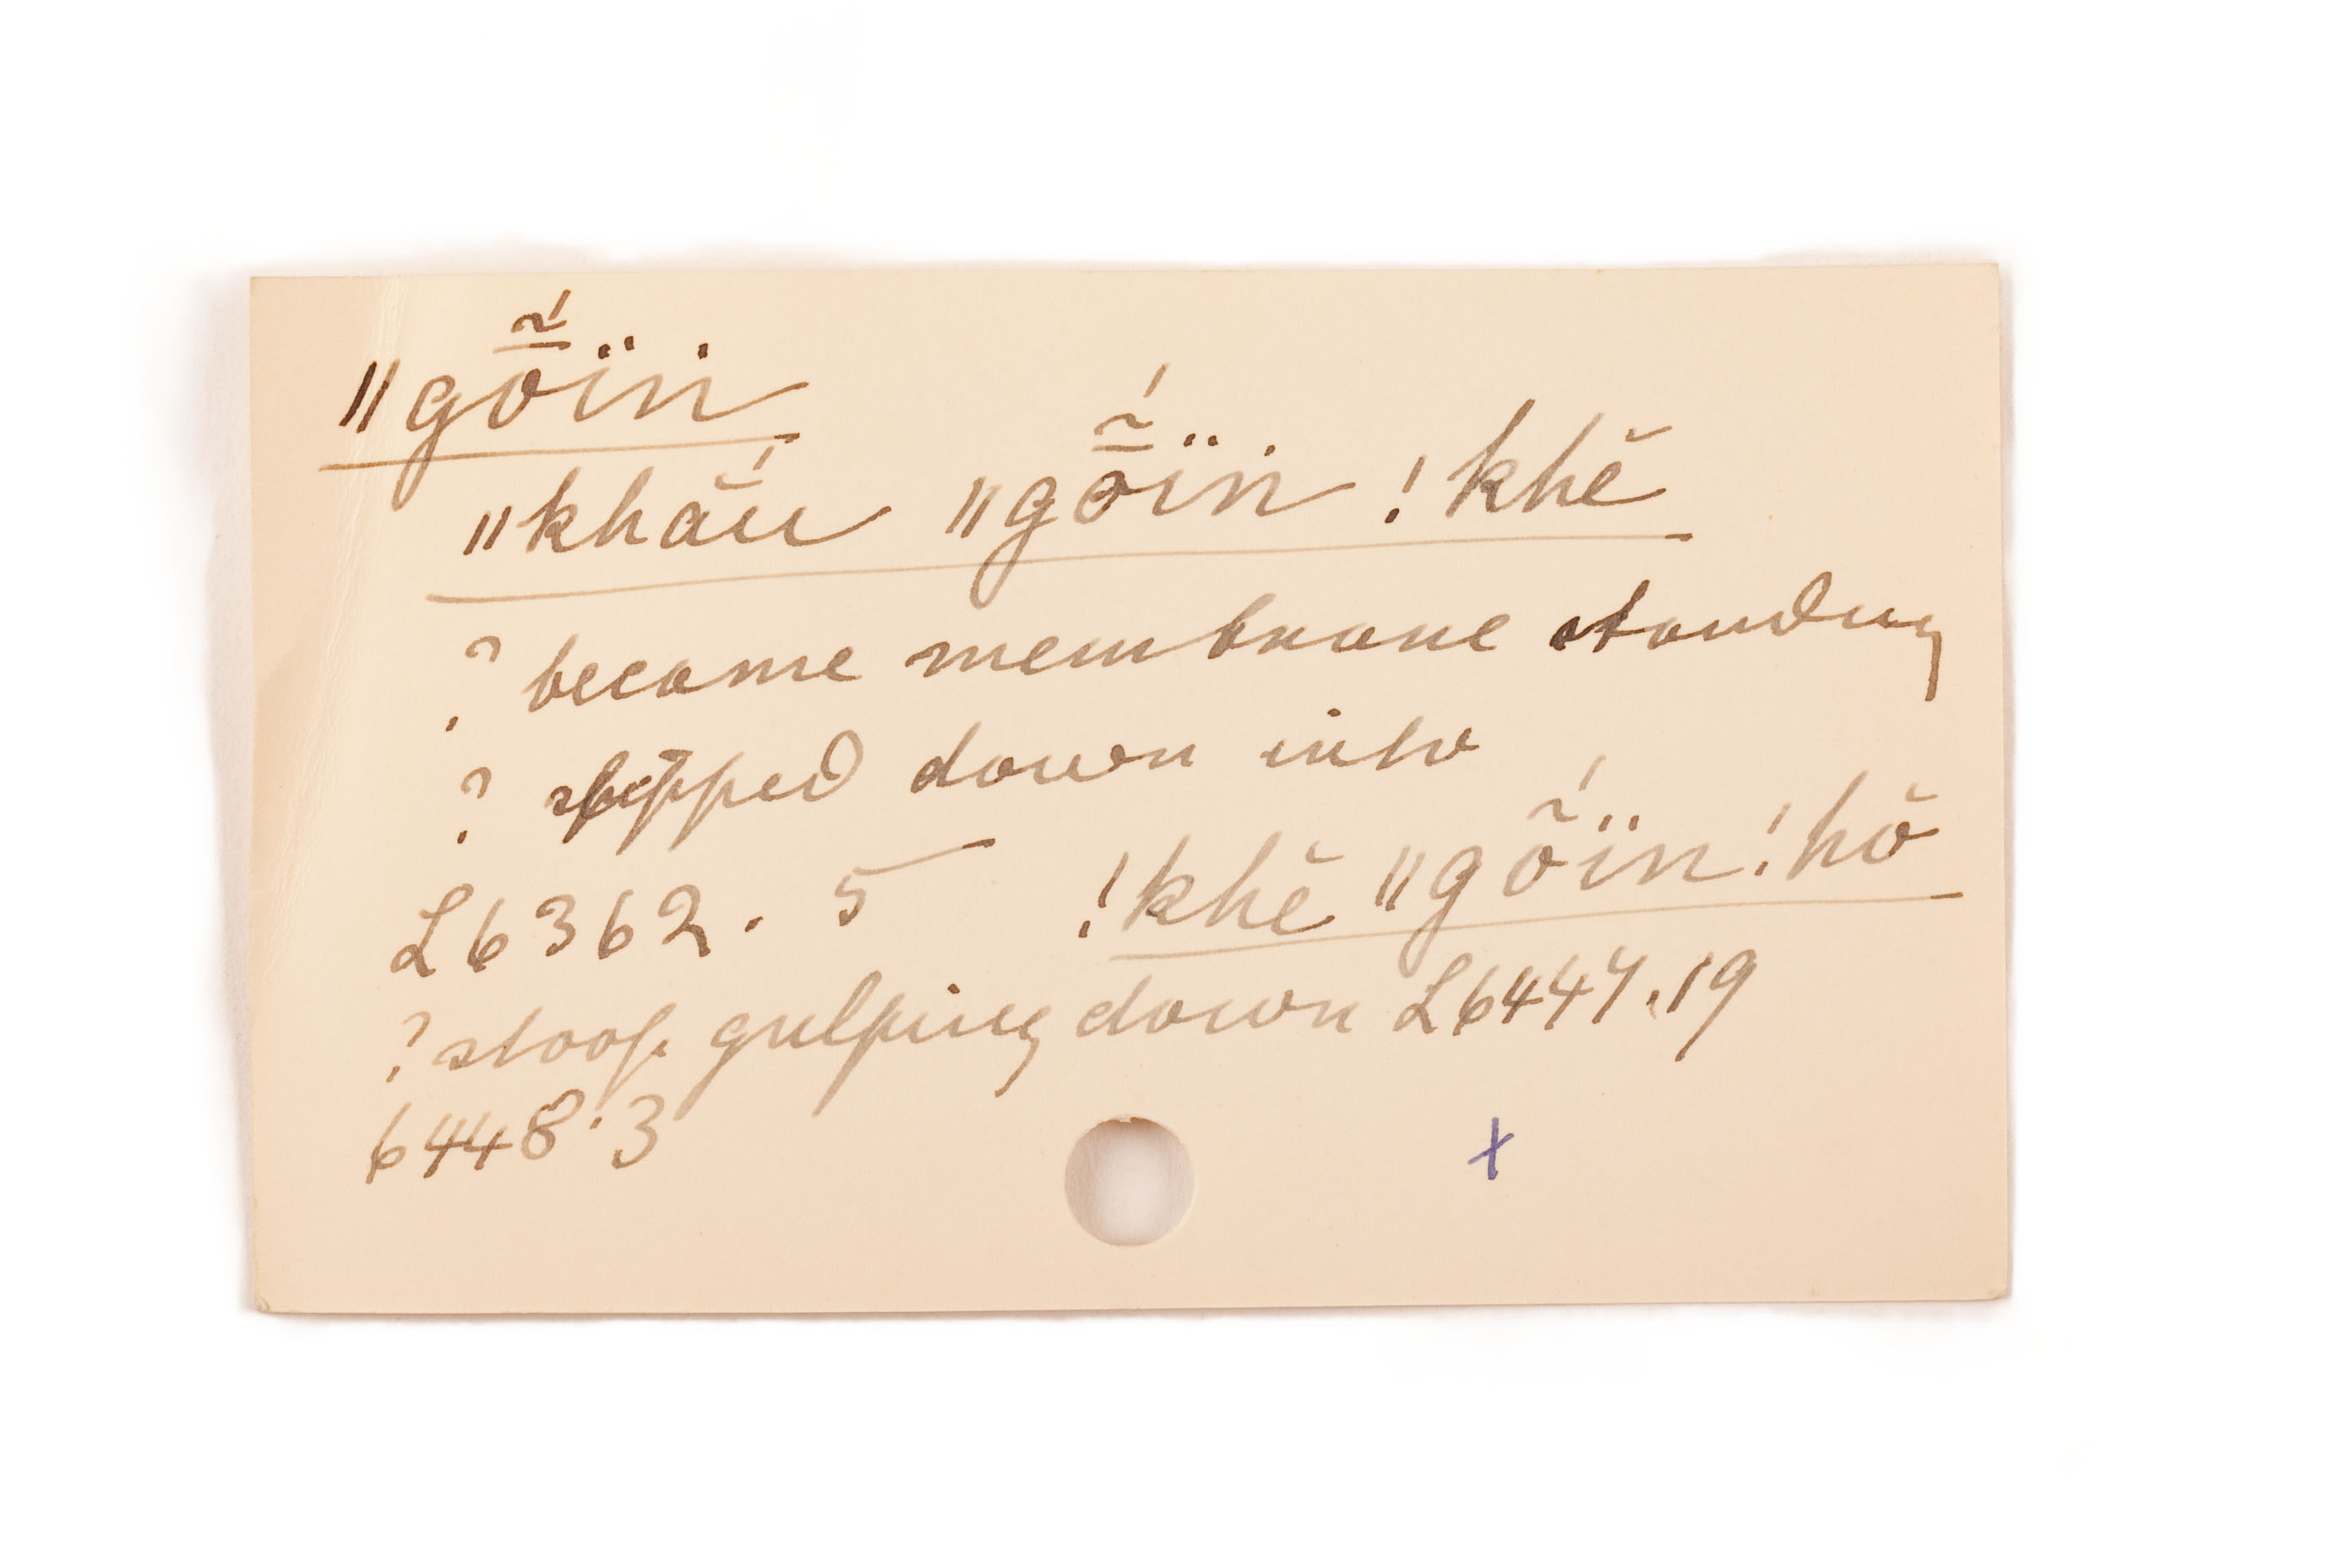 ǁgō̃́ïn
ǁkhắu ǁgō̃́ïn !khĕ
? become membrane standing
? slipped down into
L6362.5 !khĕ ǁgȭ́ïn !hŏ
? stoop gulping down L6447.19
6448.3
x